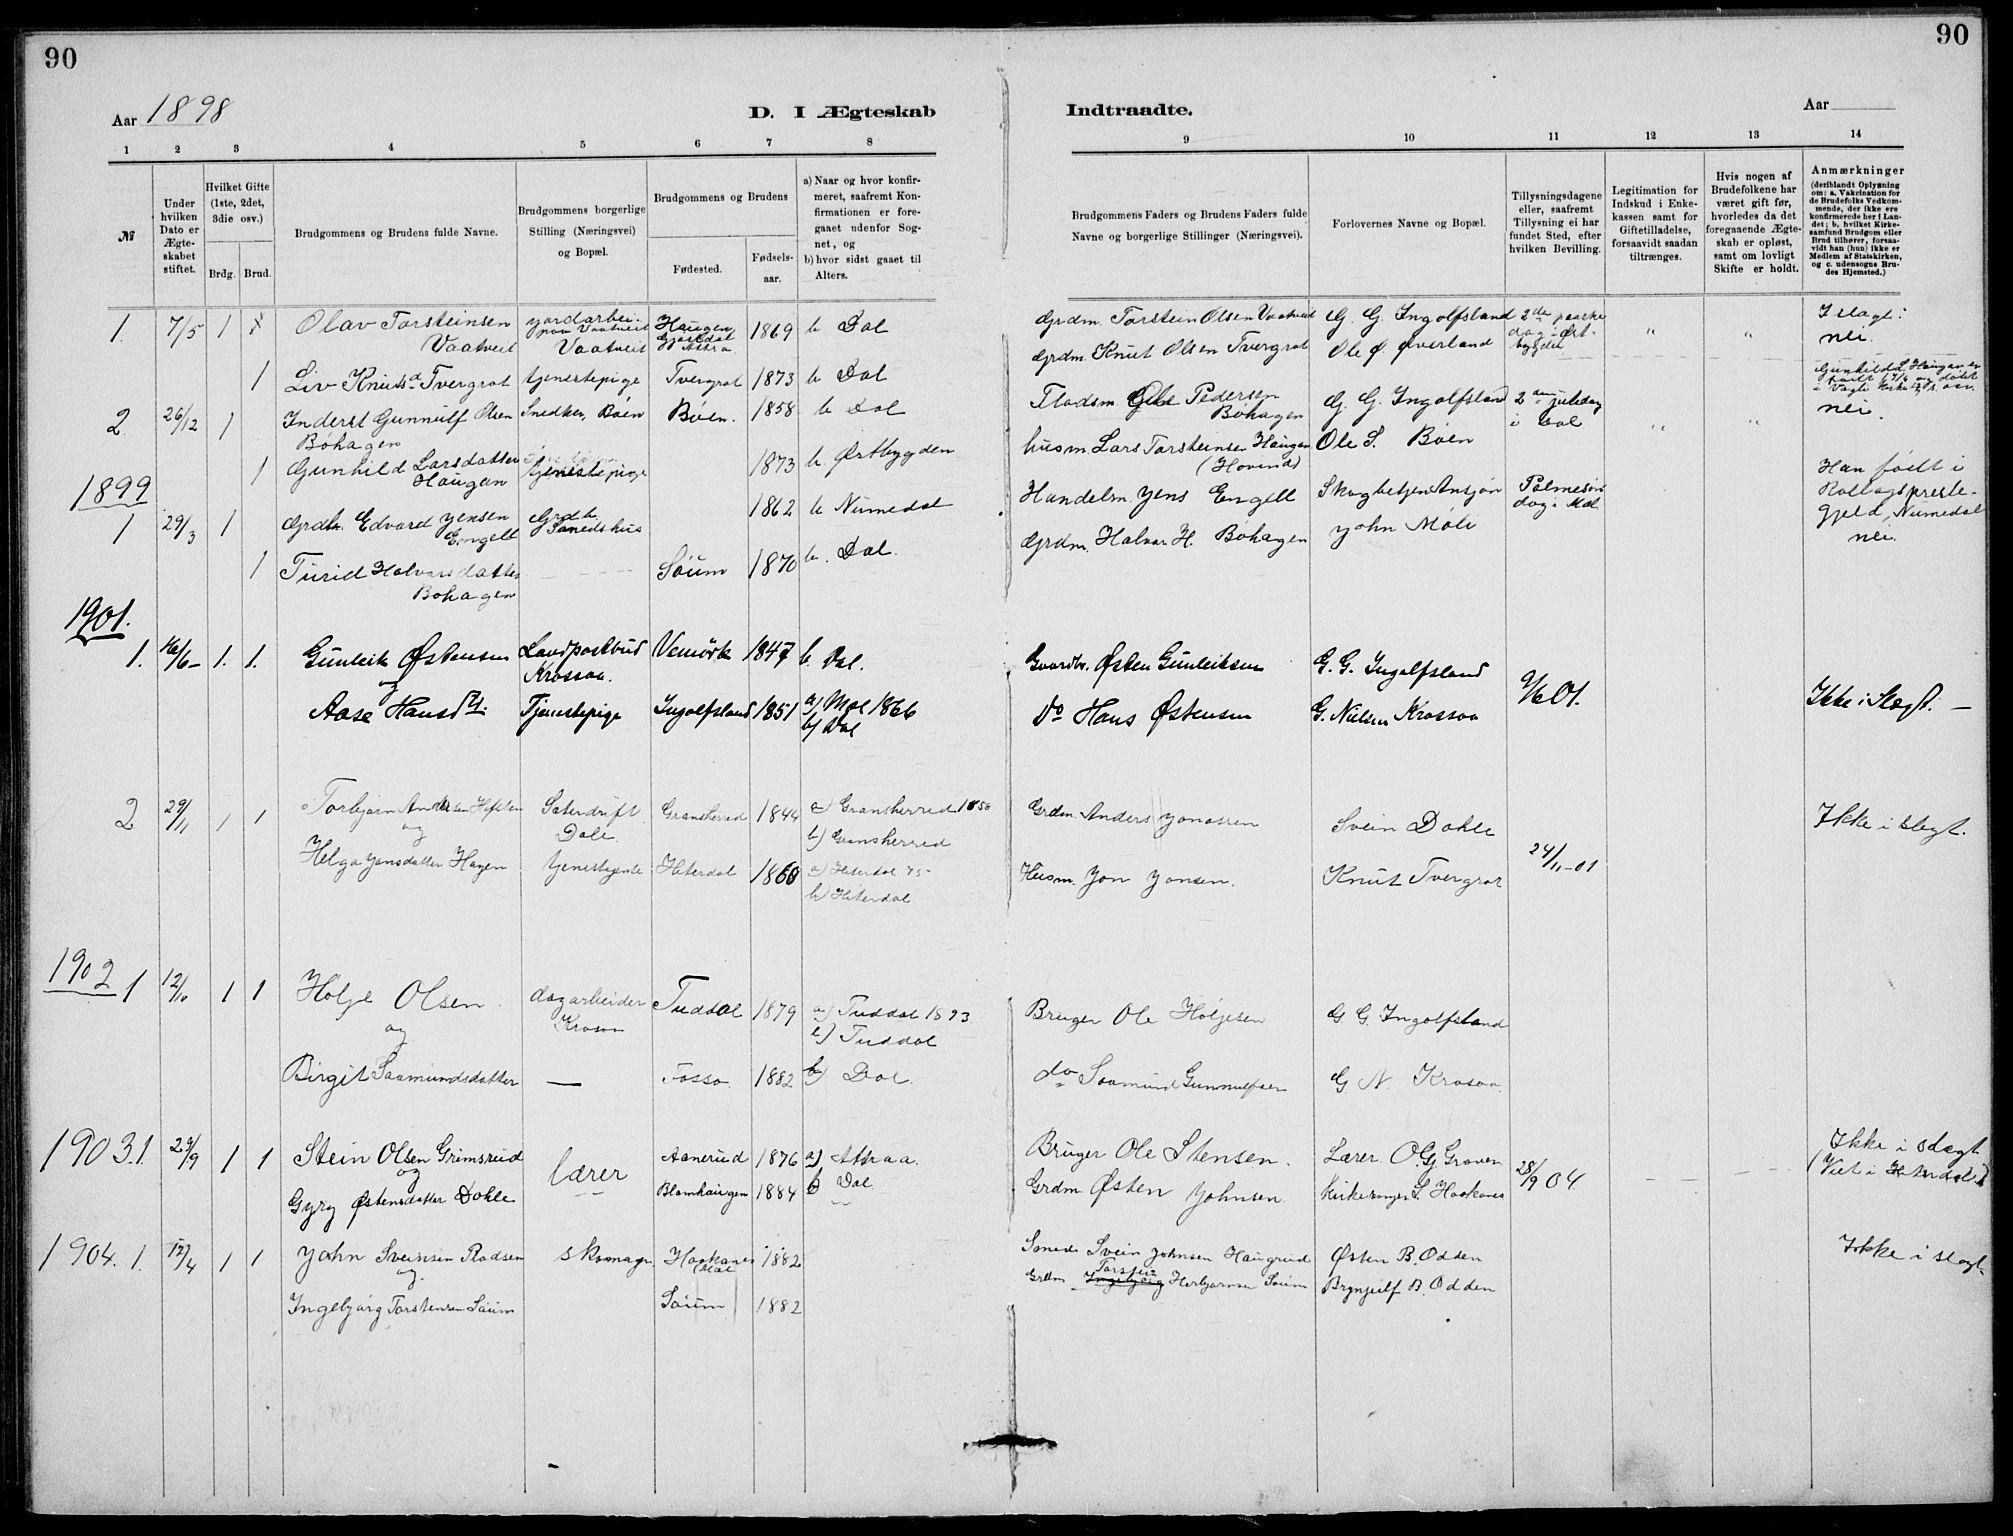 90
90
Aar 1898
D. I Ægteskab Indtraadte.
Aar
1 2 3 4 5 6 7 8 9 10 11 12 13 14
№
Under hvilken Dato er Ægteskabet stiftet.
Hvilket Gifte (1ste, 2det, 3die osv.)
Brdg. Brud.
Brudgommens og Brudens fulde Navne.
Brudgommens borgerlige Stilling (Næringsvei) og Bopæl.
Brudgommens og Brudens
Fødested. Fødselsaar.
a) Naar og hvor konfirmeret, saafremt Konfirmationen er foregaaet udenfor Sognet, og
b) hvor sidst gaaet til Alters.
Brudgommens Faders og Brudens Faders fulde Navne og borgerlige Stillinger (Næringsvei).
Forlovernes Navne og Bopæl.
Tillysningsdagene eller, saafremt Tillysning ei har fundet Sted, efter hvilken Bevilling.
Legitimation for Indskud i Enkekassen samt for Giftetilladelse, forsaavidt saadan tiltrænges.
Hvis nogen af Brudefolkene har været gift før, hvorledes da det foregaaende Ægteskab er opløst, samt om lovligt Skifte er holdt.
Anmærkninger
(deriblandt Oplysning om: a. Vakcination for de Brudefolks Vedkommende, der ikke ere konfirmerede her i Landet; b. hvilket Kirkesamfund Brudgom eller Brud tilhører, forsaavidt han (hun) ikke er Medlem af Statskirken, og c. udensogns Brudes Hjemsted.)
1. 7/5 1 Olav Torsteinsen Vaatveit jordarbei- paa Vaatveit Vaatveit Haugen Gjøsdal Attra 1869 b Dal Grdm. Torstein Olsen Vaatveit G. G. Ingolfsland 2den paaske dag i Øst- bygden " " I slægt: nei.
1 Liv Knutsd. Tvergrot tjenestepige Tvergrot 1873 b Dal Grdm. Knut Olsen Tvergrot Ole Ø. Øverland
2. 26/12 1 Inderst Gunnulf Olsen Bøhagen Snedker, Bøen Bøen. 1858 b Dal Flodsm. Ole Pedersen Bøhagen G. G. Ingolfsland 2 juledag i Dal " " nei.
1 Gunhild Larsdatter Haugan tjenestepige 1873 b. Østbygden husm. Lars Torsteinsen Haugan (Hovind) Ole S. Bøen
1899
1 29/3 1 Grdb. Edvard Jensen Engell Grdb. 1862 b Numedal Handelsm. Jens Engell Skogbetjen Ansjøn Palmesøndag i Mæl Han født i Rollags preste- gjeld, Numedal nei.
1 Turid Halvorsdatter Bøhagen Søum 1870 b. Dal. Grdm. Halvor H. Bøhagen John Møli
1901.
1. 16/6- 1. 1. Gunleik Østensen Landpostbud Krossoa. Vemørk 1847 b. Dal. Gaardbr. Østen Gunleiksen G. G. Ingolfsland
og
Aase Hansdt. Tjenestepige Ingolfsland 1851 a) Mæl 1866 b) Dal Do Hans Østensen G. Nielsen Krossoa 9/6 01. Ikke i Slægt. —
2 29/11 1 1 Torbjørn Andersen Dale. Gransherred 1844 a) Gransherred b) Gransherred Grdm. Anders Jonassen Svein Dahle Ikke i slegt.
og
Helga Jonsdatter Hagen tjenestejente Hiterdal 1860 a) Hiterdal 75 b) Hiterdal Husm. Jon Jonsen. Knut Tvergrot 24/11-01
1902 1 12/10 1 1 Holje Olsen dagarbeider Krosoa Tuddal 1879 a) Tuddal 1893 b) Tuddal Bruger Ole Holjesen G. G. Ingolfsland
og
Birgit Saamundsdatter — Fosso 1882 b) Dal. do Saamund Gunnulfsen G. N. Krosoa.
1903. 1. 29/9 1 1 Stein Olsen Grimsrud lærer Aanerud 1876 a) Attraa. Bruger Ole Stensen. Lærer O. Gj. Graver 28/9 04 Ikke i slægt
og
Gyrg Østensdatter Dahle Blomhaugen 1884 b Dal Grdm Østen Johnsen. Kirkesanger S. Haakanes (Viet i Hiterdal)
1904. 1. 12/4 1 1 John Sveinsen Rodsen skomagr. Haakanes Mæl 1882 Smed Svein Johnsen Haugrud Østen B. Odden Ikke i slægt.
og
Ingebjørg Torstensen Søum Søum 1882 Grdm Torstein Ingebjørg Herbjørnsen Søum Brynjulf B. Odden